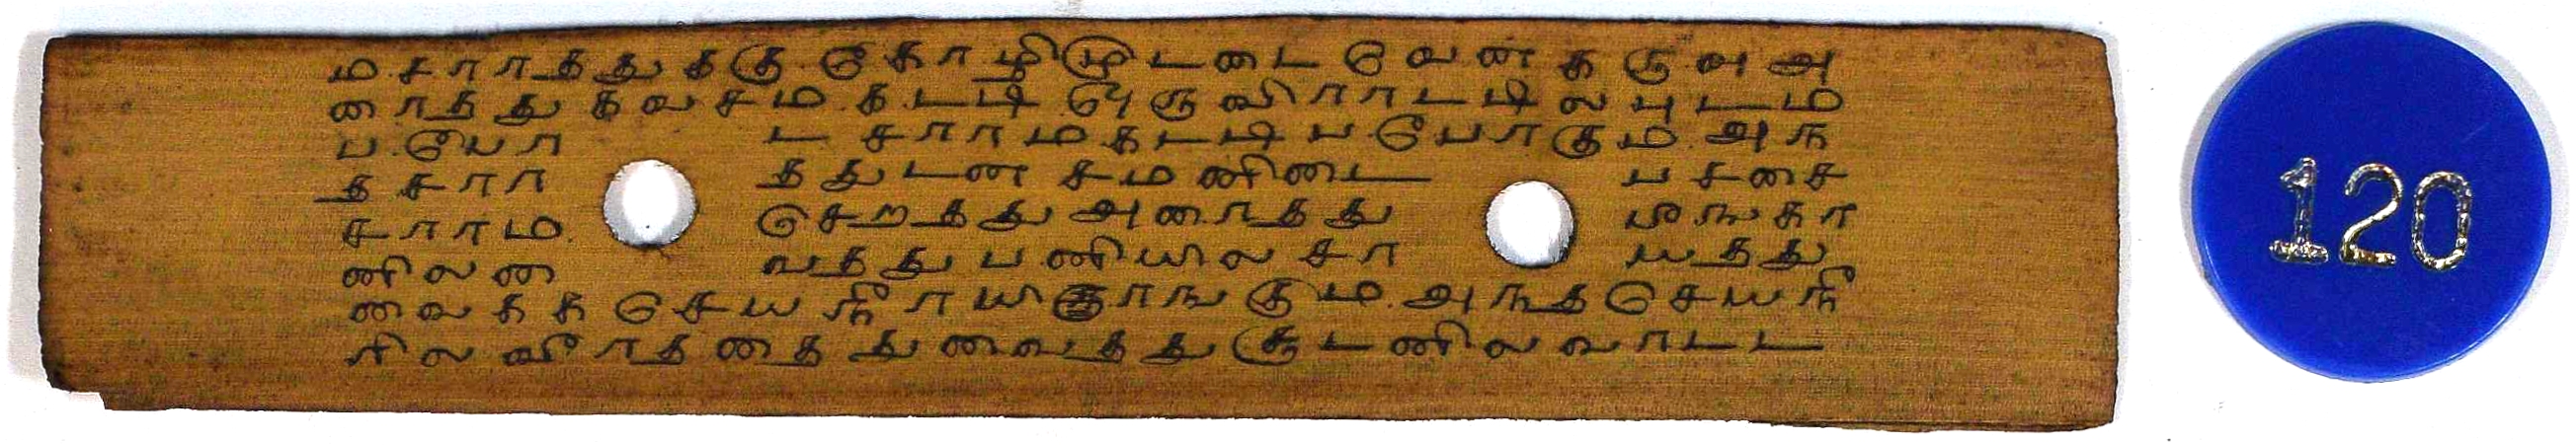 ம சாரத்துககு கோழிமுடடை வெண கருவு அ
ரைத்து கவசம கடடி எருவிராடடில புடம
ப போ ட சாரமகடடி ப போகும அந
த சார த்துடன சமனிடை பசசை
சாரம செறத்து அரைத்து பீஙகா
னிலை வத்து பனியில சா யத்து
வைகக செயநீராயிருாஙகும அந்த செயநீ
ரில வீரத்தைத்து வைத்து சூடனில வாடட
120